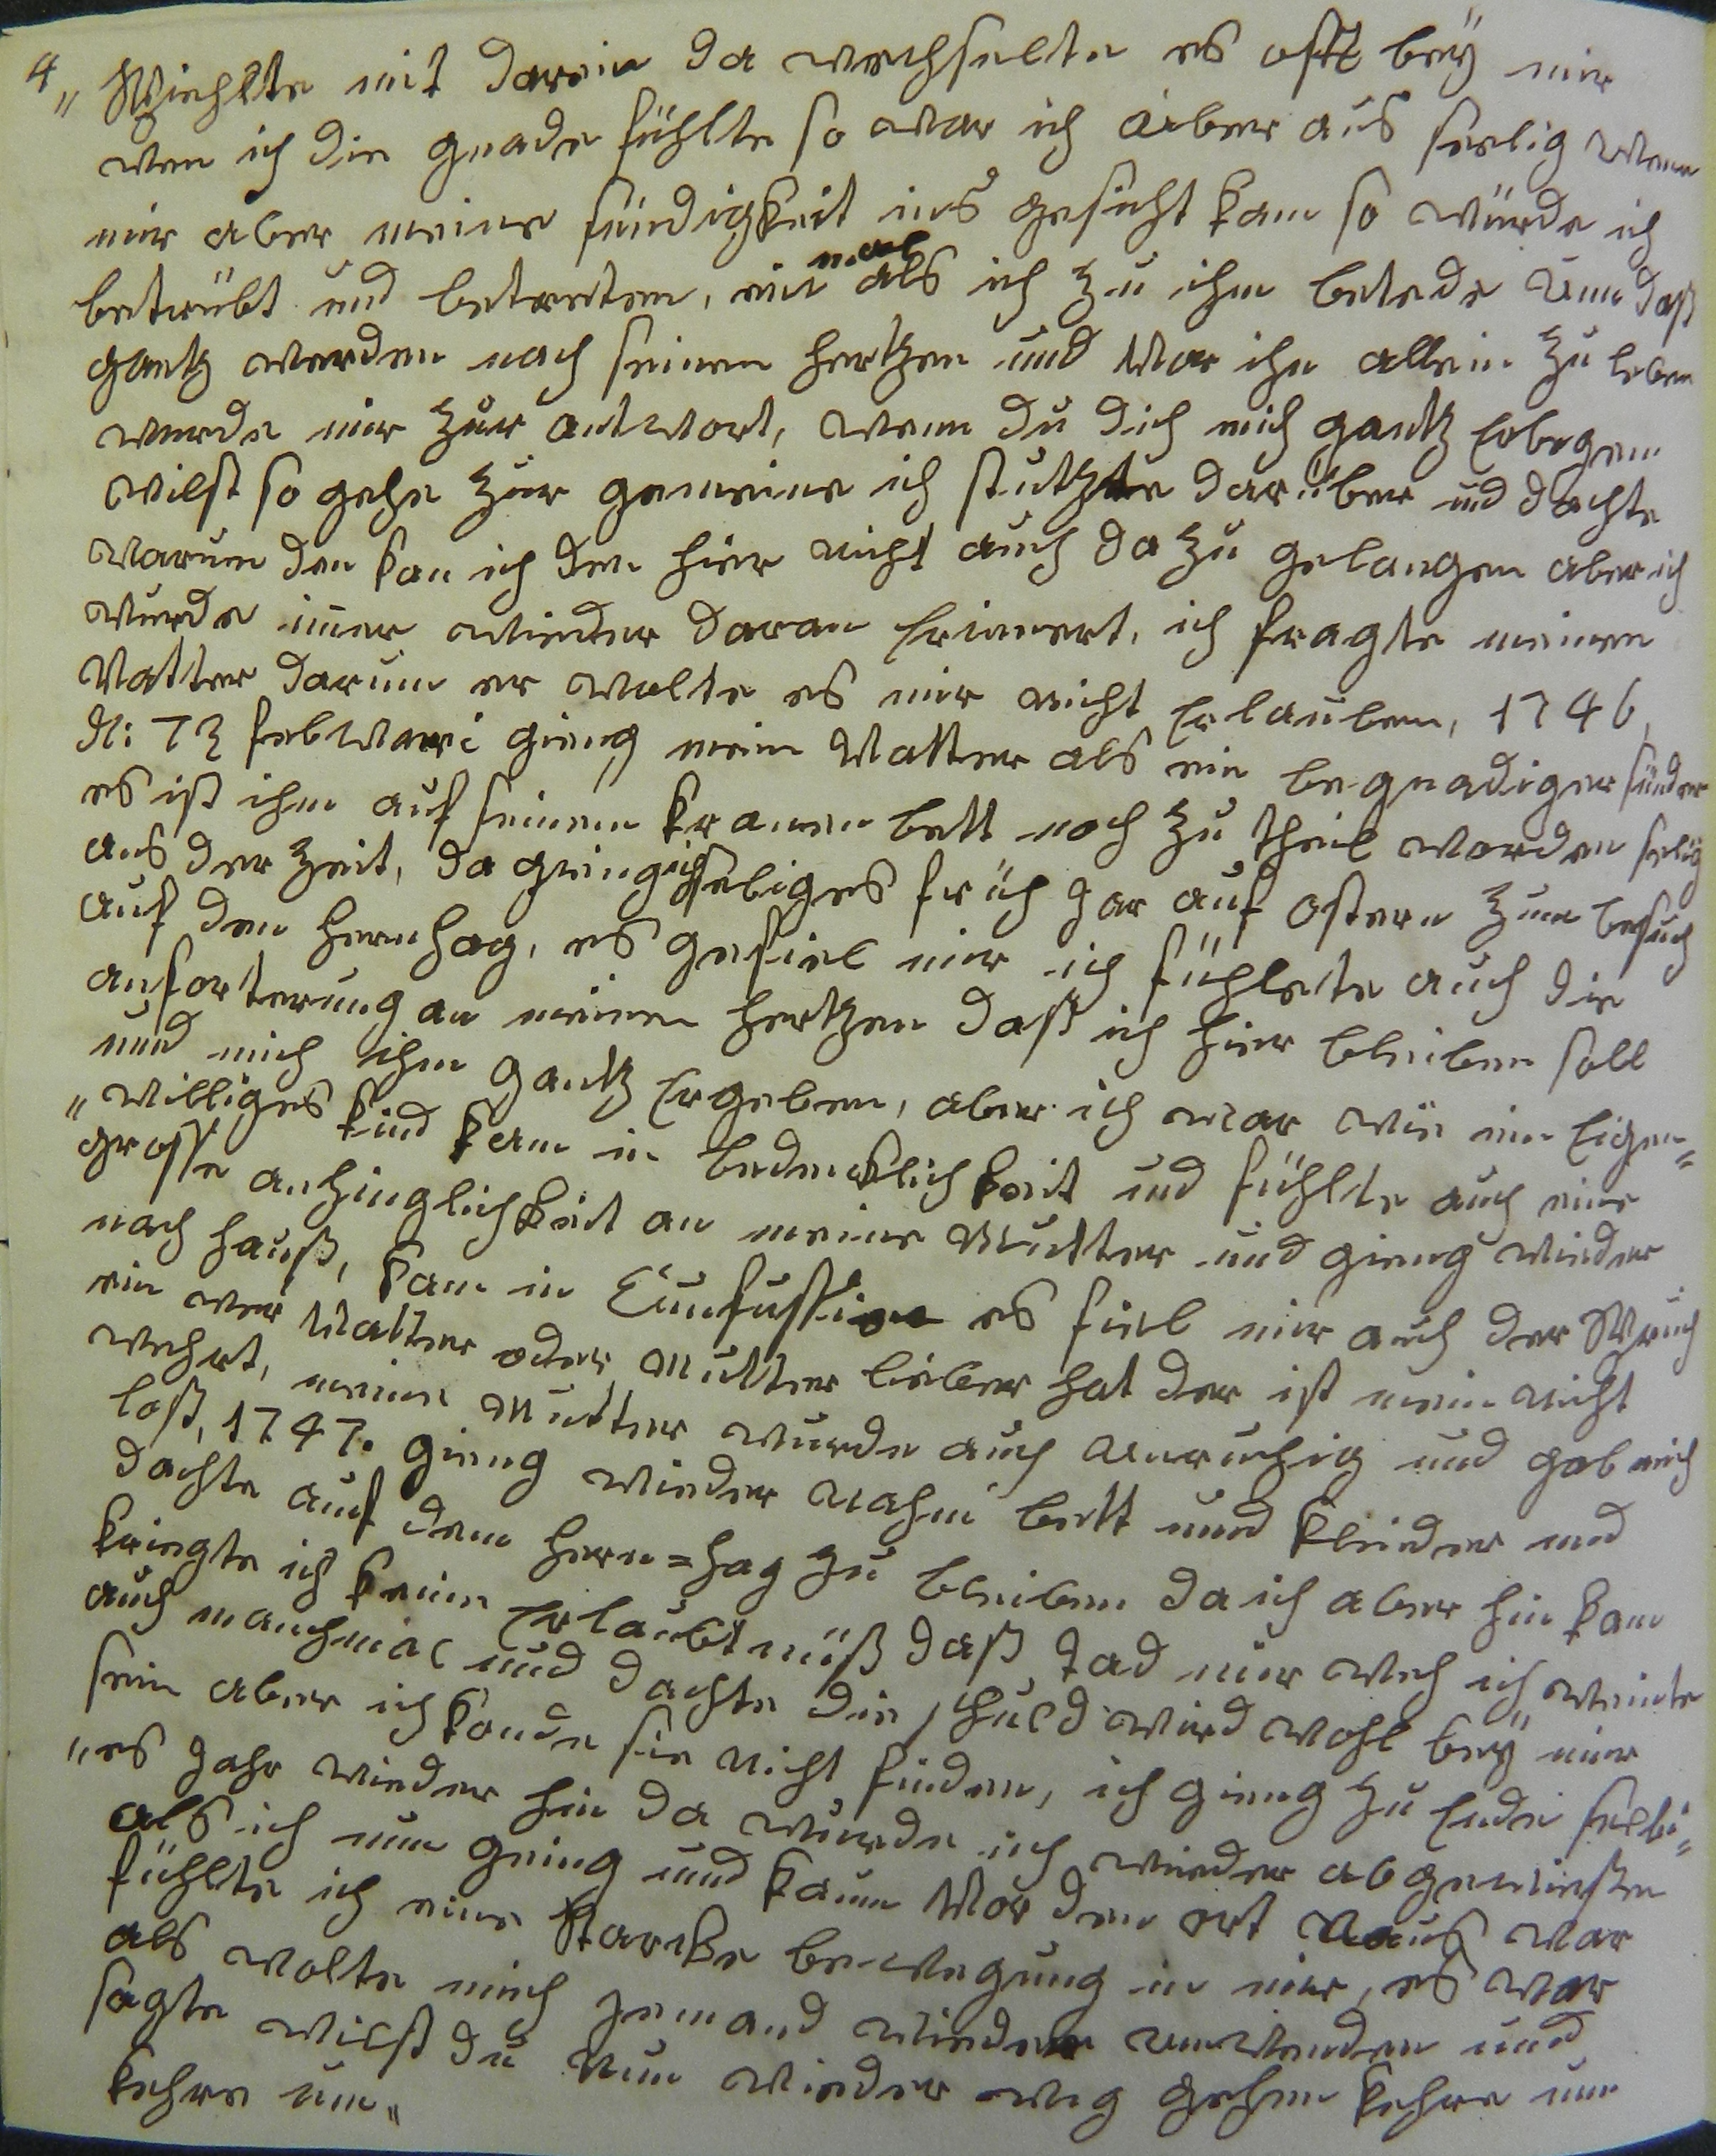 4„ Spiehlte mit darein da wechselte es oftt beÿ mir
wen ich die gnade fühlte so war ich über aus seelig wenn
mir aber meine sündigkeit ins gesicht kam so würde ich
betrübt und betreten, ein mal als ich zu ihm betede üm daß
gantz werden nach seinen hertzen und Vor ihn allein zu leben
wurde mir zur antwort, wenn du dich mich gantz Ergeben
wilst so gehe zur gemeine ich stutzte darüber und dachte
warum den kan ich den hier nicht auch da zu gelangen aber ich
wurde im̅er wieder daran Erinnert, ich fragte meinen
Vatter darum er wolte es mir nicht Erlauben, 1746,
d: 13 febWari gieng mein Vatter als ein begnadiger sünder
es ist ihm auf seinem kranen bett noch zu theil worden selig
aus der Zeit, da gieng ich selbiges früh Jar auf ostern zum besuch
auf den hernhag, es gefiel mir ich fühlete auch die
anforterung an meinen hertzen daß ich hier bleiben soll
und mich ihm gantz Ergeben, aber ich war wie ein Eigen„
„williges kind kam in bedencklichkeit und fühlte auch eine
grosse anhinglichkeit an meine Mutter und gieng wieder
nach hauß, kam in Cunfussion es fiel mir auch der Spruch
ein wer Vatter oder Mutter lieber hat der ist mein nicht
wehrt, meine Mutter wurde auch unruchig und gab mich
loß, 1747. gieng wieder nahm bett und kleider und
dachte auf dem hern=hag zu bleiben da ich aber hin kam
kriegte ich keine Erlaubtnüß daß tad mir weh ich weinte
auch manchmal und dachte die schuld wird wohl beÿ mir
sein aber ich konde sie nicht finden, ich gieng zu Ende selbi„
„es Jahr wieder hin da wurde ich wieder abgewiessen
als ich nun gieng und kaum Vor den ort naus war
fühlte ich eine starcke bewegung in mir, es war
als wolte mich jemand wieder umwenden und
sagte wilst du nun wieder weg gehen kehre um
kehre um„